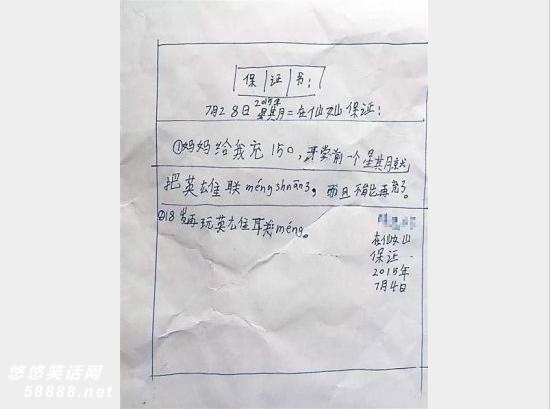 保证书:
2015年
7月28日星期二在仙女山保证:
①妈妈给我充150,开学前一个星期就
把英雄联méngshnān了,而且不能再充了。
②18岁再玩英雄联méng。
在仙女山
保证.
2015年
7月4日
悠悠笑话网
58888.net